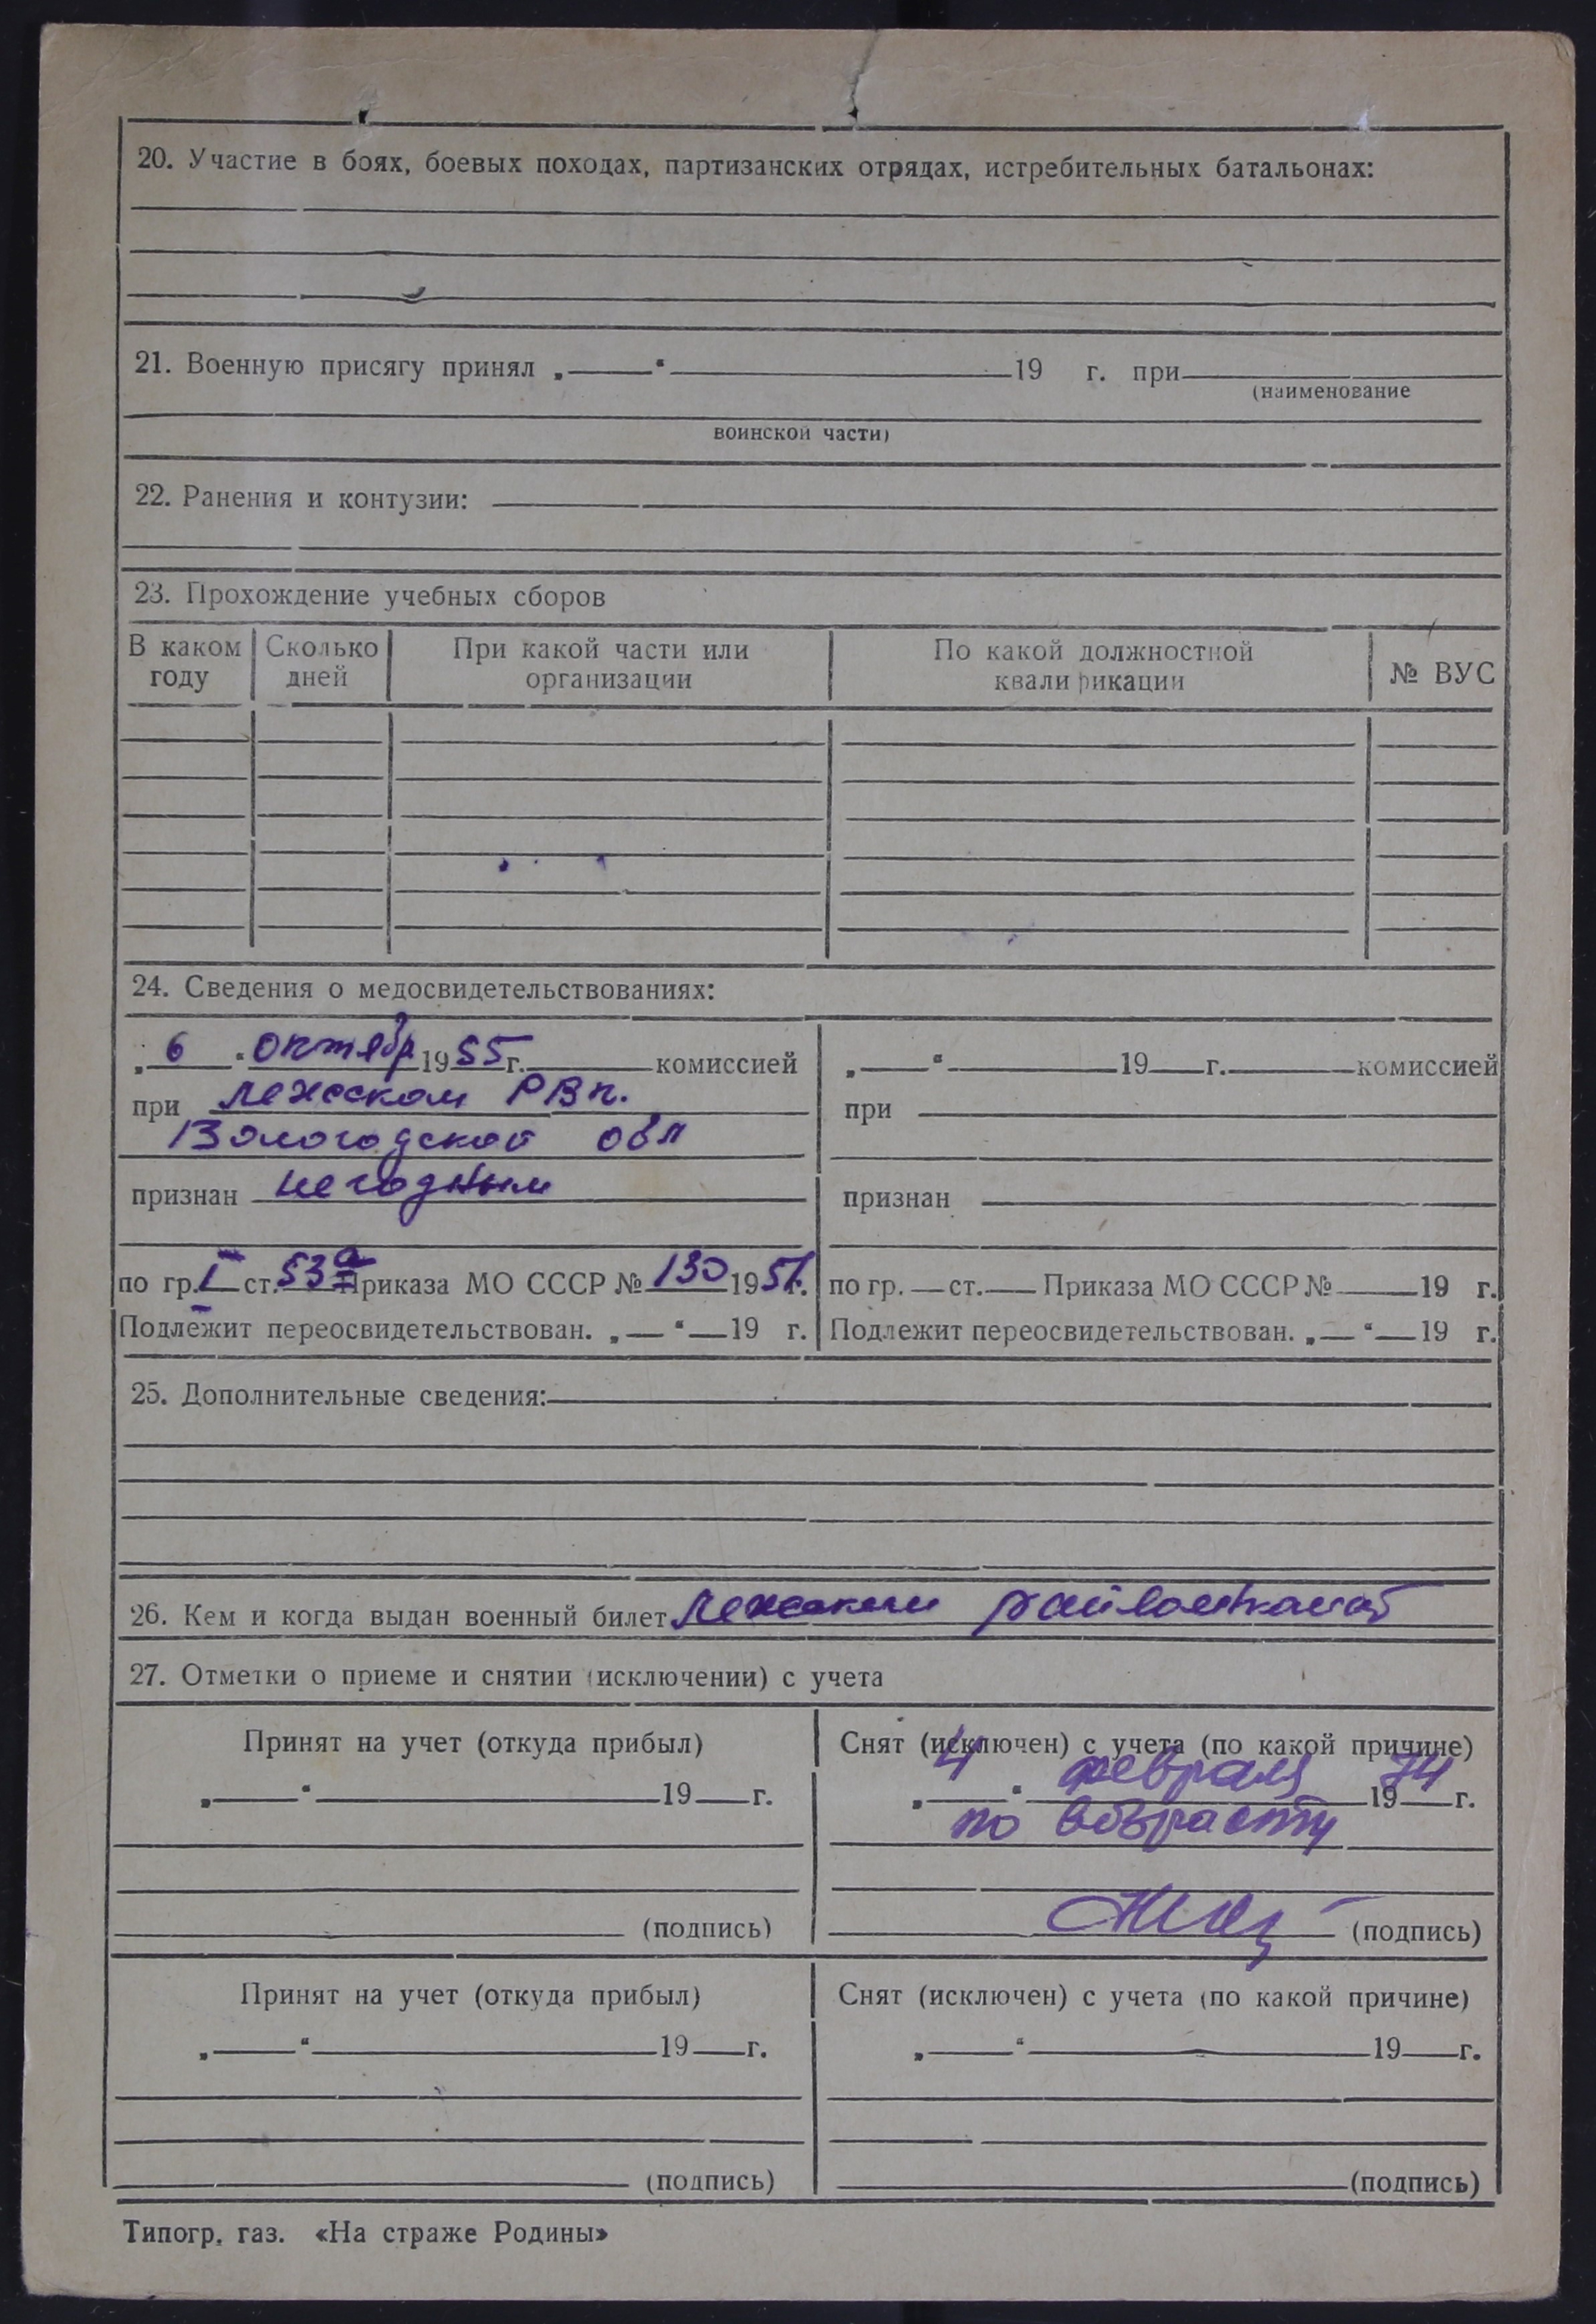 20. Участие в боях, боевых походах, партизанских отрядах, истребительных батальонах:
21. Военную присягу принял „ “ 19 г. при
(наименование
воинской части)
22. Ранения и контузии:
23. Прохождение учебных сборов
В каком году
Сколько дней
При какой части или организации
По какой должностной квалификации
№ ВУС
24. Сведения о медосвидетельствованиях:
„ 6 “ октябр 1955 г. комиссией
при Лежском РВК.
Вологодской обл
признан негодным
по гр. I ст. 53а Приказа МО СССР № 130 1951 г.
Подлежит переосвидетельствован. „ “ 19 г.
„ “ 19 г. комиссией
при
признан
по гр. ст. Приказа МО СССР № 19 г.
Подлежит переосвидетельствован. „ “ 19 г.
25. Дополнительные сведения:
26. Кем и когда выдан военный билет Лежским райвоенкомат
27. Отметки о приеме и снятии (исключении) с учета
Принят на учет (откуда прибыл)
„ “ 19 г.
(подпись)
Снят (исключен) с учета (по какой причине)
„ 4 “ февраля 1974 г.
по возрасту
(подпись)
Принят на учет (откуда прибыл)
„ “ 19 г.
(подпись)
Снят (исключен) с учета (по какой причине)
„ “ 19 г.
(подпись)
Типогр. газ. «На страже Родины»